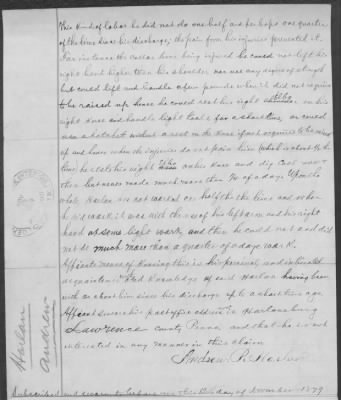 This kind of labor he did not do one half and perhaps one quarter
of the time since his discharge; the pain from his injuries prevented it.
For instance the collar bone being injured he could not lift his
right hand higher than his shoulder nor use any degree of strength
but could lift and handle a few pounds when it did not require
to be raised up hence he could rest his right elbow on his
right knee and handle light tools for a short time or could
use a hatchet without a rest on the knee if not required to be raised
up and hence when the injuries do not pain him (which is about 1/2 the
time) he rests his right elbow on his knee and
but never made much more than 1/4 of a days
while Harlan is not worked on half the the time and when
he did work it was with the use of his left arm and his right
hand at some light work and then he could not and did
not do much more than a quarter of a days work.
Affiants means of knowing this is his personal and intimate
acquaintance and knowledge of said Harlan having been
with or about him since his discharge up to a short time ago
Affiant swears his post office address is Harlansburg
Lawrence county Penna and that he is not
interested in any manner in this claim
Andrew R.
Subscribed and sworn to before me this day of November 1879
Harlan
Andrew